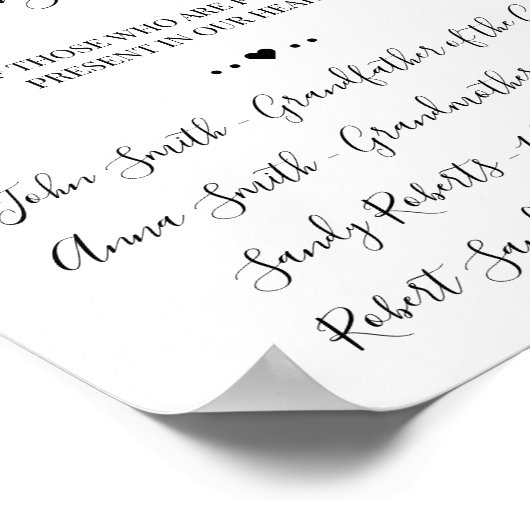 THOSE WHO ARE
PRESENT IN OUR HEA
John Smith - Grandfather of the
Anna Smith - Grandmother
Sandy Roberts -
Robert